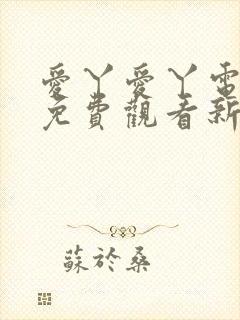 愛丫愛丫電
免費觀看新
蘇於桑